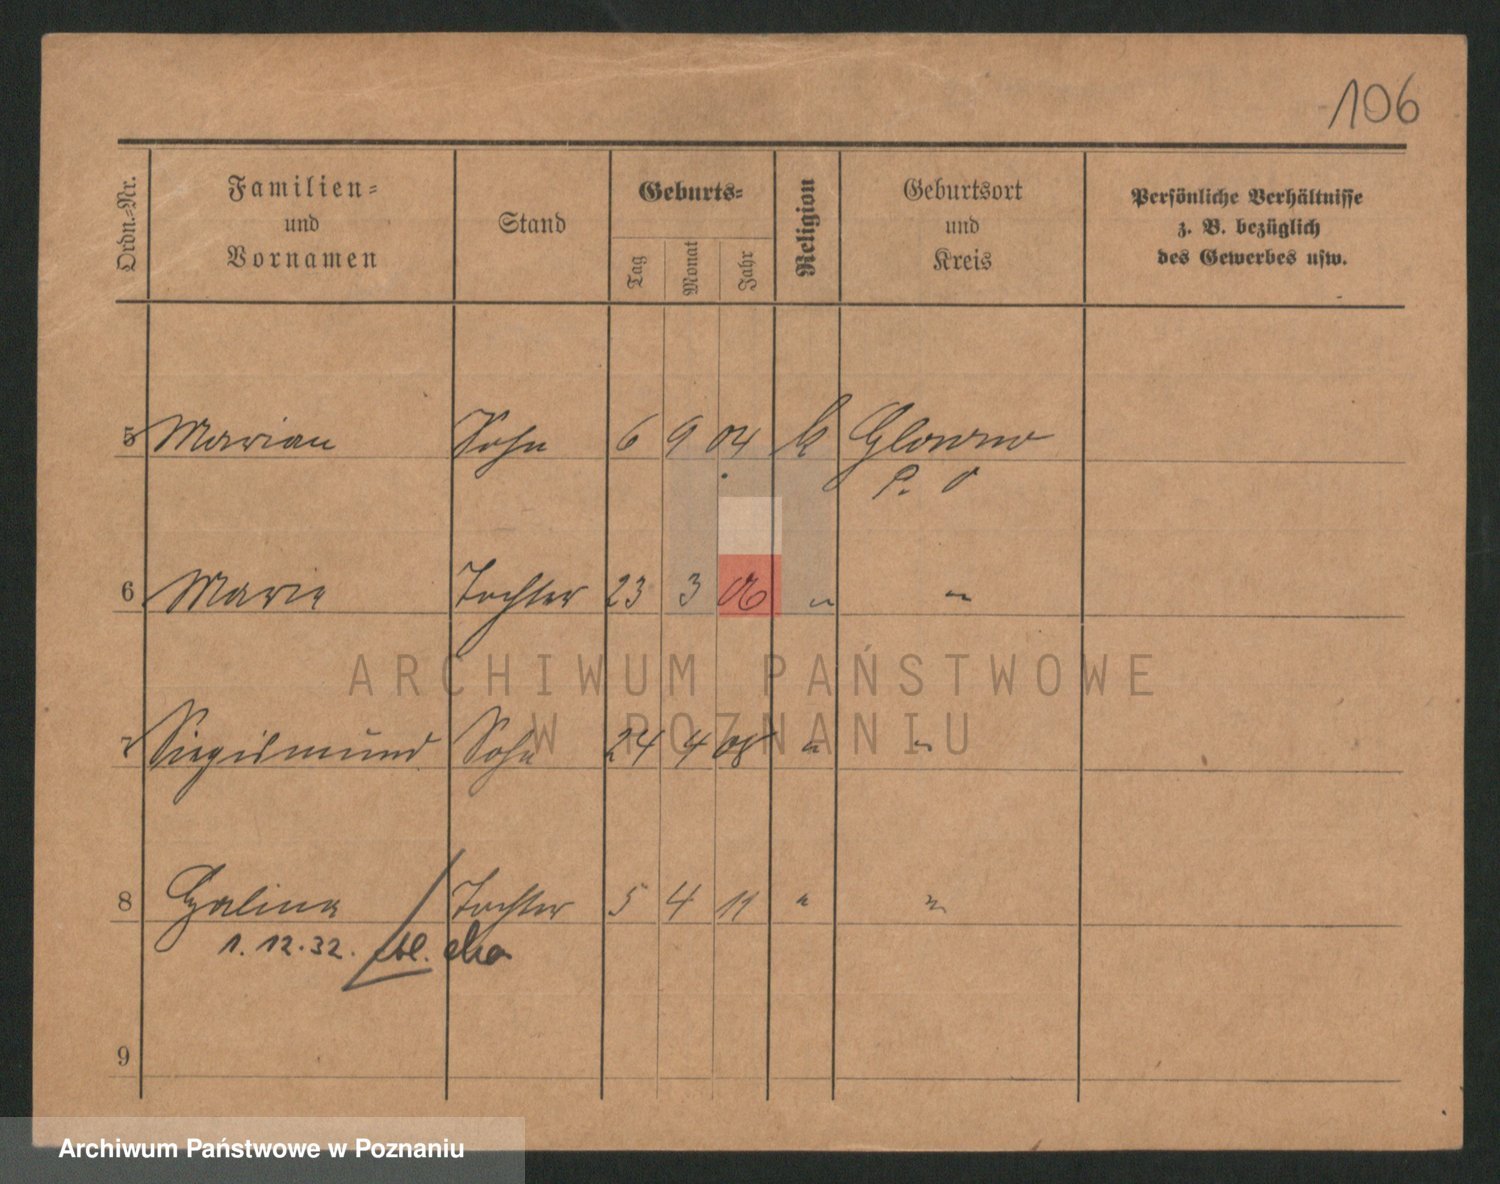 106
Ordn.-Nr.
Familien-
und
Vornamen
Stand
Geburts-
Tag
Monat
Jahr
Religion
Geburtsort
und
Kreis
Persönliche Verhältnisse
z. B. bezüglich
des Gewerbes usw.
5 Marian Sohn 6 9 04 k Glowno
P. O
6 Marie Tochter 23 3 06 " "
ARCHIWUM PAŃSTWOWE
W POZNANIU
7 Siegismund Sohn 24 4 08 " "
8 Halina Tochter 5 4 11 " "
1. 12. 32.
9
Archiwum Państwowe w Poznaniu